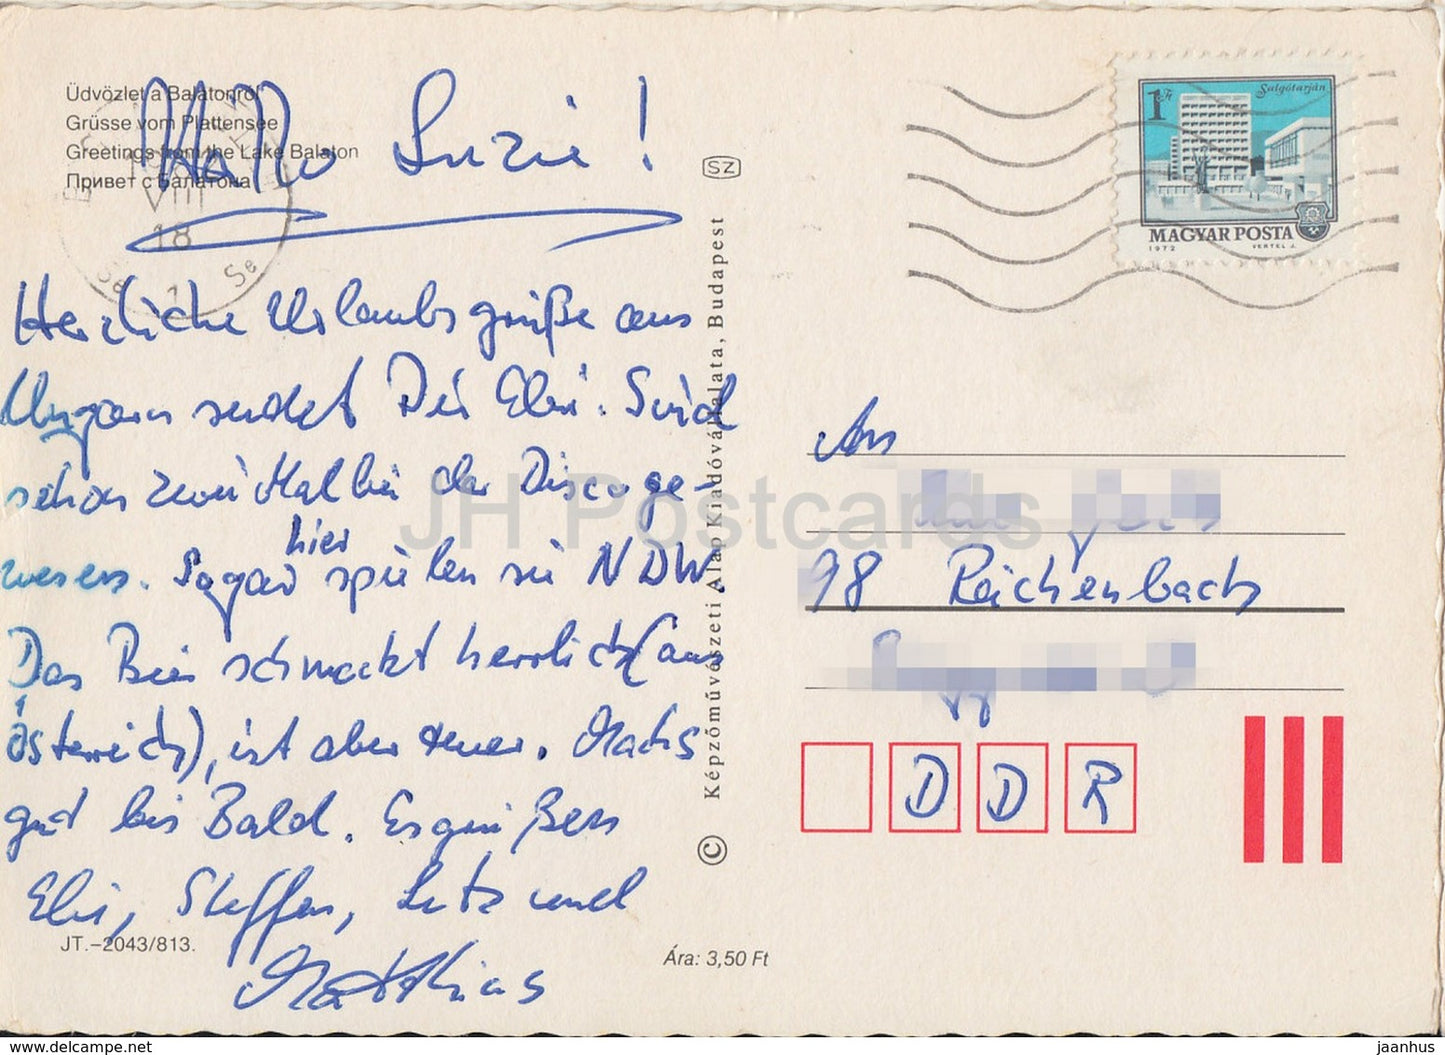 Üdvözlet a Balatonról
Grüsse vom Plattensee
Greetings from the Lake Balaton
Привет с Балатона
Hallo Suzie!
VIII
18
Herzliche Urlaubsgrüße aus
Ungarn sendet Dir Elvi. Sind
schon zwei Mal hier in der Disco ge-
wesen. Sogar hier spielen sie NDW.
Das Bier schmeckt herrlich (aus
Österreich), ist aber teuer. Machs
gut bis Bald. Es grüßen
Elvi, Steffen, Lutz und
Matthias
JT.-2043/813.
Ára: 3,50 Ft
SZ
© Képzőművészeti Alap Kiadóvállalata, Budapest
1 Ft
Salgótarján
MAGYAR POSTA
1972
VERTEL J.
An
98 Reichenbach
DDR
JH Postcards
www.delcampe.net
jaanhus